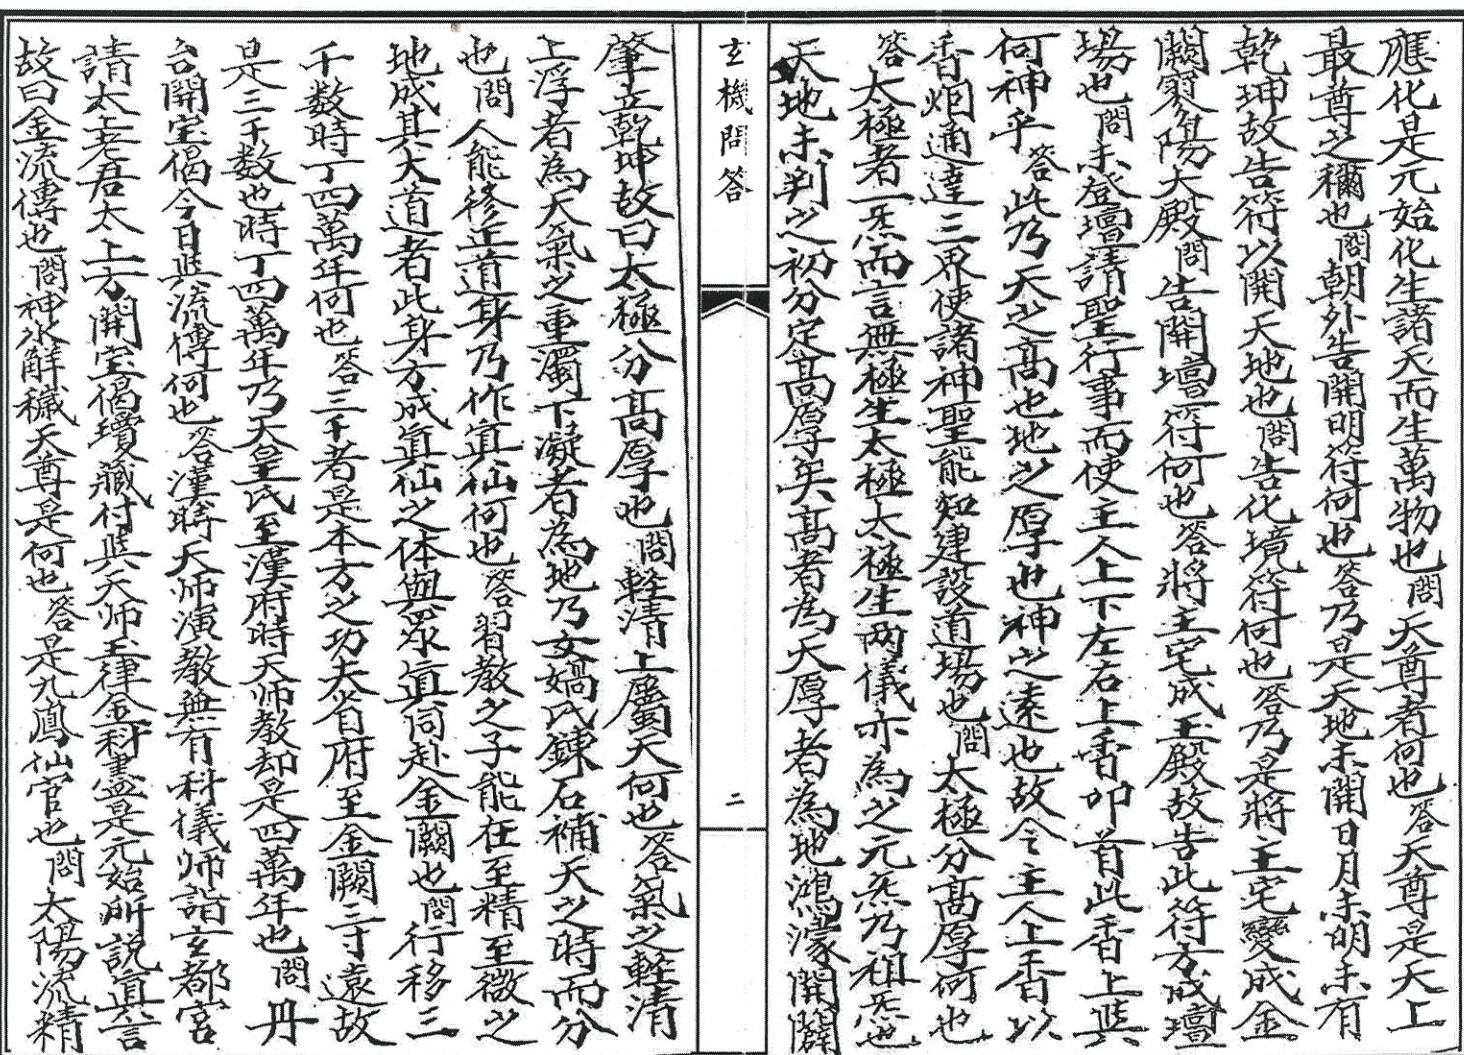 應化是元始化生諸天而生萬物也問天尊者何也答天尊是天上
最尊之稱也問朝外告開明符何也答乃是天地未開日月未明未有
乾坤故告符以開天地也問告化境符何也答乃是將主宅變成金
闕寥陽大殿問告開壇符何也答將主宅成王殿故告此符方成壇
場也問未登壇請聖行事而使主人上下左右上香叩首此香上與
何神乎答此乃天之高也地之厚也神之遠也故令主人上香以
香烟通達三界使諸神聖能知建設道場也問太極分高厚何也
答太極者一炁而言無極生太極太極生兩儀亦為之元炁乃祖炁也
天地未判之初分定高厚矣高者為天厚者為地鴻濛開闢
玄機問答
二
肇立乾坤故曰太極分高厚也問輕清上屬天何也答氣之輕清
上浮者為天氣之重濁下凝者為地乃女媧氏鍊石補天之時而分
也問人能修正道身乃作真仙何也答習教之子能在至精至微之
地成其大道者此身方成真仙之体與眾真同赴金闕也問行移三
千数時丁四萬年何也答三千者是本方之功夫省府至金闕三寸遠故
是三千数也時丁四萬年乃天皇氏至漢府時天师教却是四萬年也問丹
台開宝偈今日與流傳何也答漢時天师演教無有科儀师詣玄都宮
請太上老君太上方開宝偈瓊藏付與天师玉律金科盡是元始所說真言
故曰金流傳也問神水解穢天尊是何也答是九鳳仙官也問太陽流精